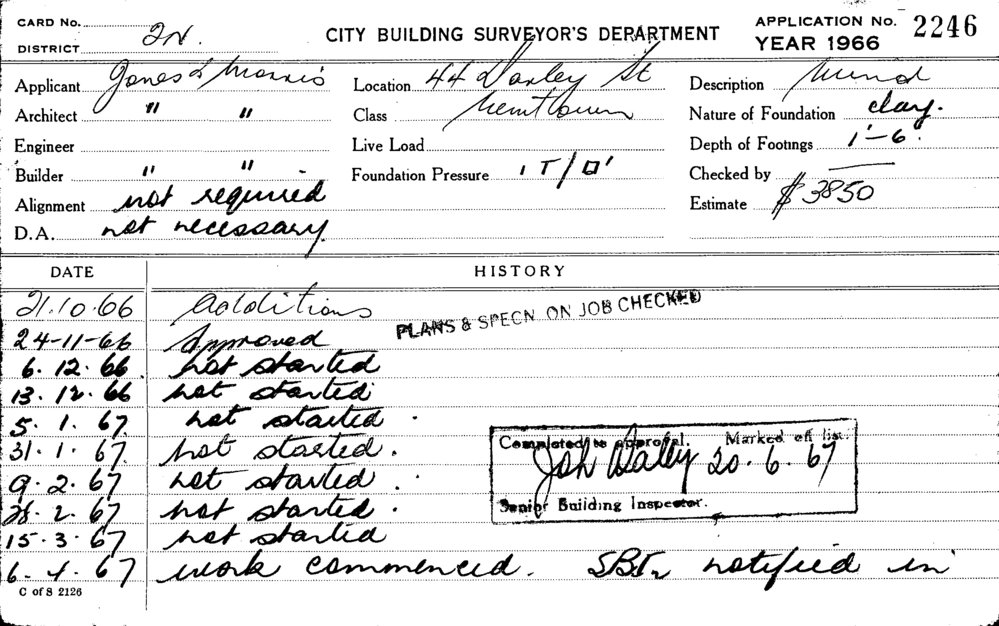 CARD No.
DISTRICT 2N.
CITY BUILDING SURVEYOR'S DEPARTMENT
APPLICATION No. 2246
YEAR 1966
Applicant Jones & Morris
Location 44 Darley St
Description
Architect " "
Class Newtown
Nature of Foundation clay.
Engineer
Live Load
Depth of Footings 1'-6"
Builder " "
Foundation Pressure 1 T/□'
Checked by
Alignment not required
Estimate $3850
D.A. not necessary.
DATE HISTORY
21.10.66 Additions
PLANS & SPECN. ON JOB CHECKED
24-11-66 Approved
6.12.66 not started
13.12.66 not started
5.1.67 not started
31.1.67 not started.
9.2.67 not started.
28.2.67 not started.
15.3.67 not started
6.4.67 work commenced. notified in
Completed to approval. Marked off list.
Daley 20.6.67
Senior Building Inspector.
C of S 2126